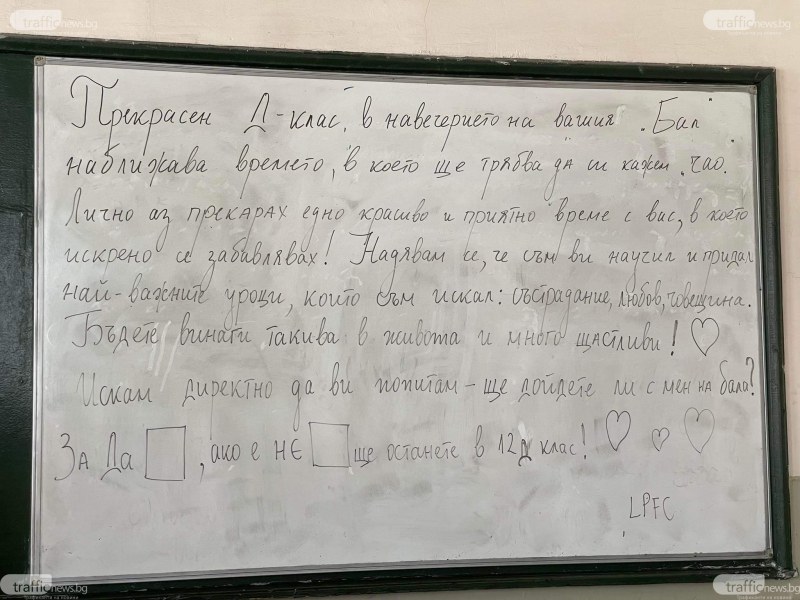 trafficnews.bg
trafficnews.bg
Прекрасен Д-клас, в навечерието на вашия "Бал"
наближава времето, в което ще трябва да си кажем "чао.
Лично аз прекарах едно красиво и приятно време с вас, в което
искрено се забавлявах! Надявам се, че съм ви научил и придал
най-важните уроци, които съм искал: състрадание, любов, човещина.
Бъдете винаги такива в живота и много щастливи! ♡
Искам директно да ви попитам - ще дойдете ли с мен на бала?
За Да □, ако е НЕ □ ще останете в 12Д клас! ♡ ♡ ♡
LPFC
trafficnews.bg
trafficnews.bg